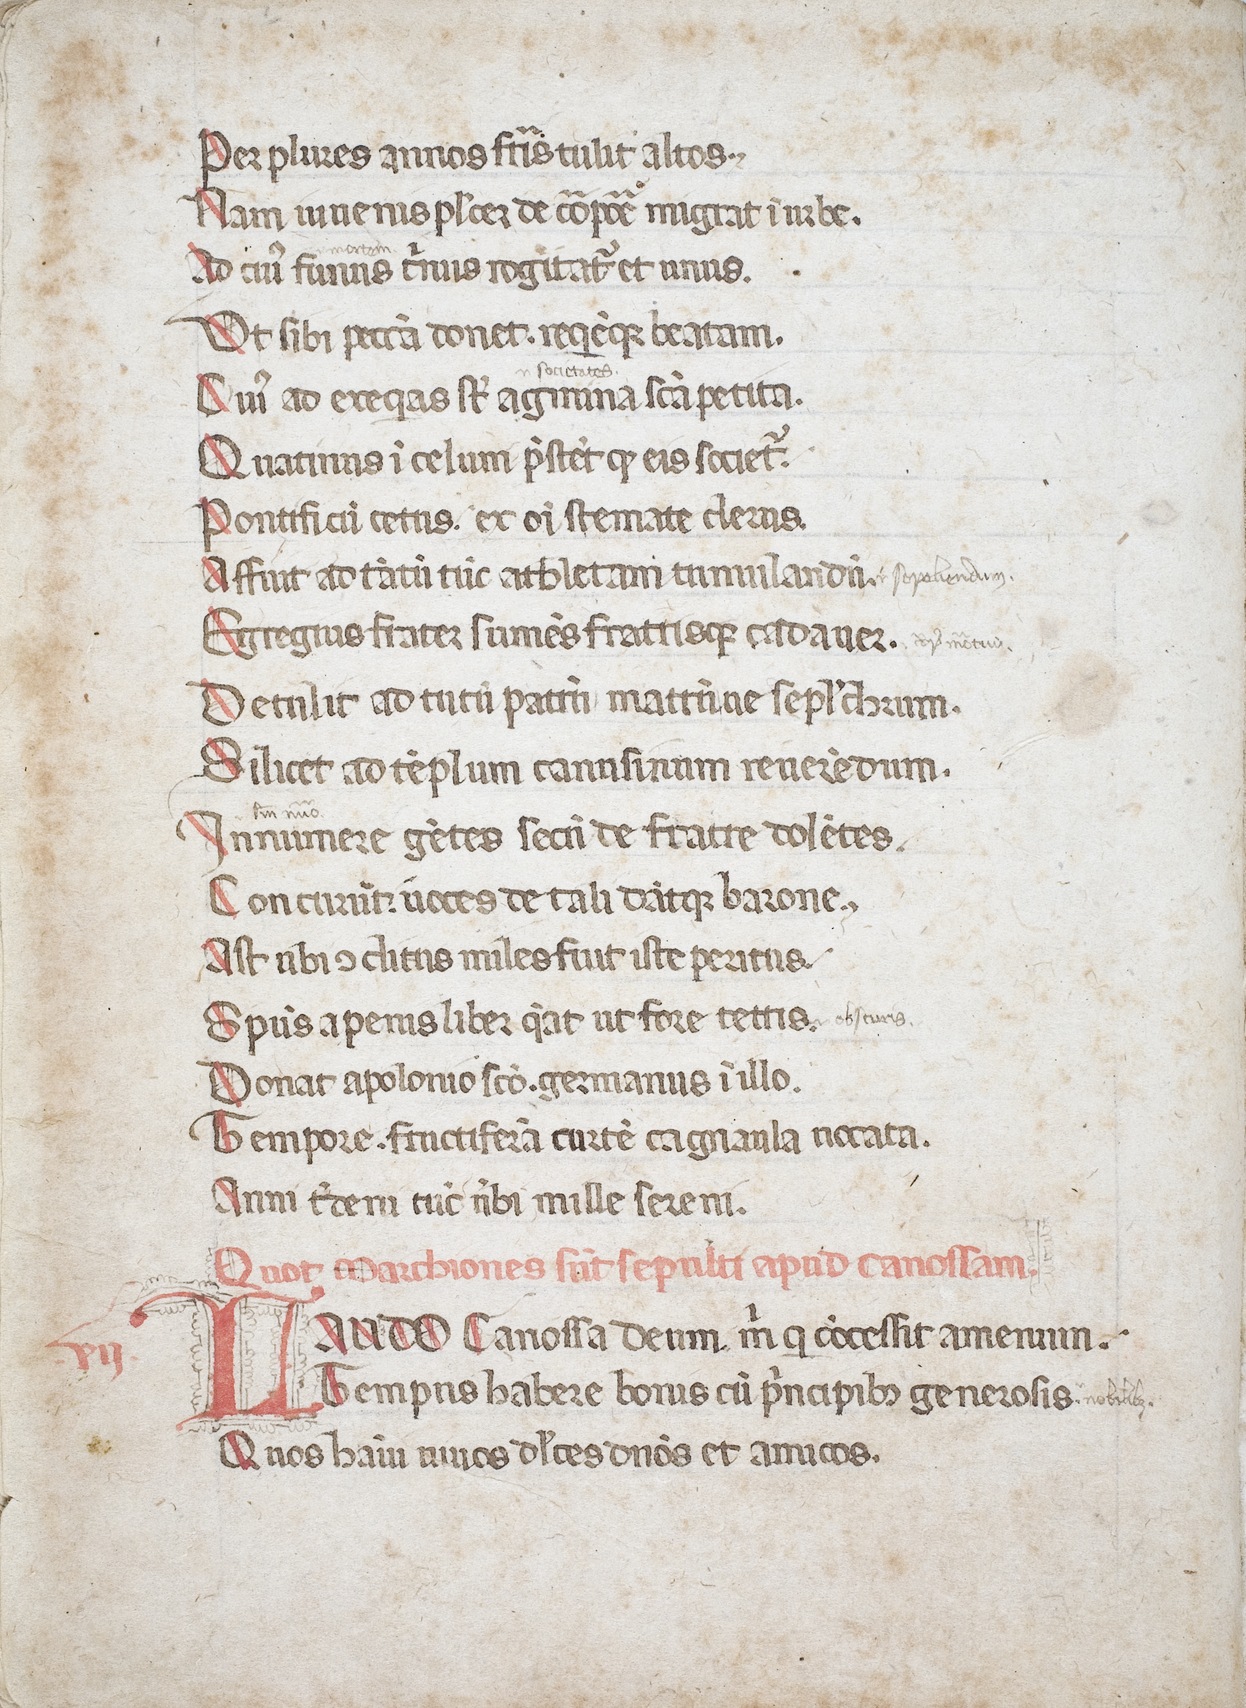 Per plures annos fr̃is tulit altos.
Nam iuuenis pl̃cer de cõpõe migrat ĩ urbe.
mortem.
Ad cui᾽ funus t̾nus rogitat᾽ et unus.
Vt sibi peccã donet. reqẽq beatam.
societates.
Cui᾽ ad exeqias st̾ agmina scã petita.
Quatinus ĩ celum p̃stẽt q eis societ᾽.
Pontificũ cetus. ex oĩ stemate clerus.
Affuit ad tãtũ tũc athletam tumulandũ. sepeliendum.
Egregius frater sumẽs fratrisq cadauer.
Detulit ad tutũ patrũ matrũue sepl̾chrum.
Silicet ad tẽplum canusinum reuerẽdum.
Innumere gẽtes secũ de fratre dolẽtes.
Concurũt. uoces de tali dãtq barone.
Ast ubi ɔclitus miles fuit iste peritus.
Spũs a penis liber q̃at ut fore tetris. obscuris.
Donat apolonio scõ. germanus ĩ illo.
Tempore. fructiferã curtẽ cagnaula uocata.
Anni t̾deni tũc ũbi mille sereni.
Quot marchiones sũt sepulti apud canossam.
.VII. LAUDO Canossa deum. m̾ q cõcessit amenum.
Tempus habere bonus cũ p̾ncipibȝ generosis. nobilibȝ.
Quos habui uiuos dl̾ces dnõs et amicos.